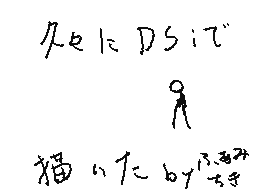 久々に DSiで
描いた by ふあみ
ちき